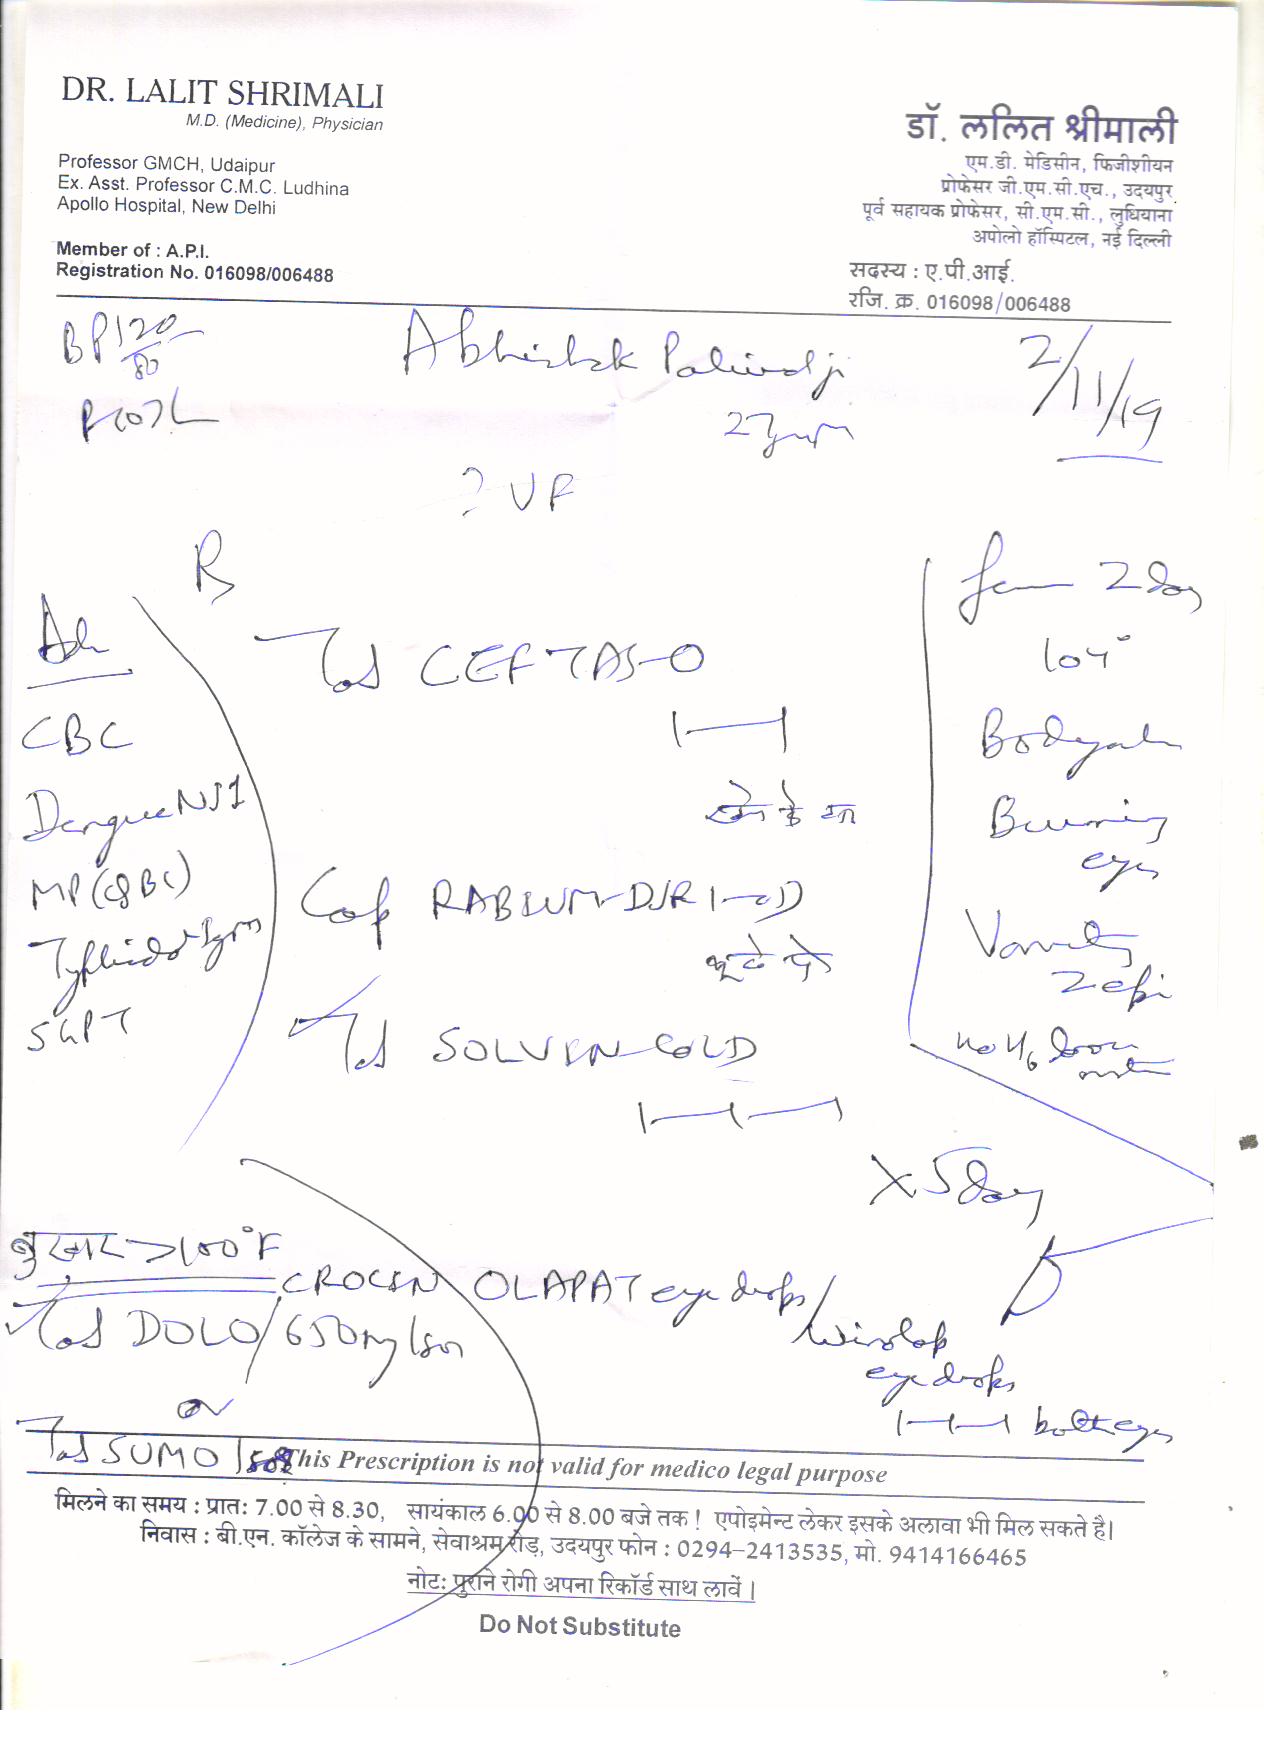 DR. LALIT SHRIMALI
M.D. (Medicine), Physician
Professor GMCH, Udaipur
Ex. Asst. Professor C.M.C. Ludhina
Apollo Hospital, New Delhi
Member of : A.P.I.
Registration No. 016098/006488
डॉ. ललित श्रीमाली
एम.डी. मेडिसीन, फिजीशीयन
प्रोफेसर जी.एम.सी.एच., उदयपुर
पूर्व सहायक प्रोफेसर, सी.एम.सी., लुधियाना
अपोलो हॉस्पिटल, नई दिल्ली
सदस्य : ए.पी.आई.
रजि. क्र. 016098/006488
BP 120/80
Abhishek Paliwal ji
2/11/19
27 years
? VF
R
Adv
CBC
Dengue NS1
MP (QBC)
Typhidot Igm
SGPT
Tab CEFTAS-O
1—1
Cap RABLUM-DSR 1-OD
Tab SOLVIN-COLD
1—1—1
X 5 day
2 day
104°
Bodyache
Burning
eyes
Vomiting
2 epi
no H/o
बुखार >100°F
CROCIN
Tab DOLO/650mg/sos
or
Tab SUMO/sos
OLAPAT eye drops/
Winolap
eye drops
1-1-1 both eyes
This Prescription is not valid for medico legal purpose
मिलने का समय : प्रातः 7.00 से 8.30, सायंकाल 6.00 से 8.00 बजे तक ! एपोइमेन्ट लेकर इसके अलावा भी मिल सकते है।
निवास : बी.एन. कॉलेज के सामने, सेवाश्रम रोड़, उदयपुर फोन : 0294-2413535, मो. 9414166465
नोटः पुराने रोगी अपना रिकॉर्ड साथ लावें ।
Do Not Substitute